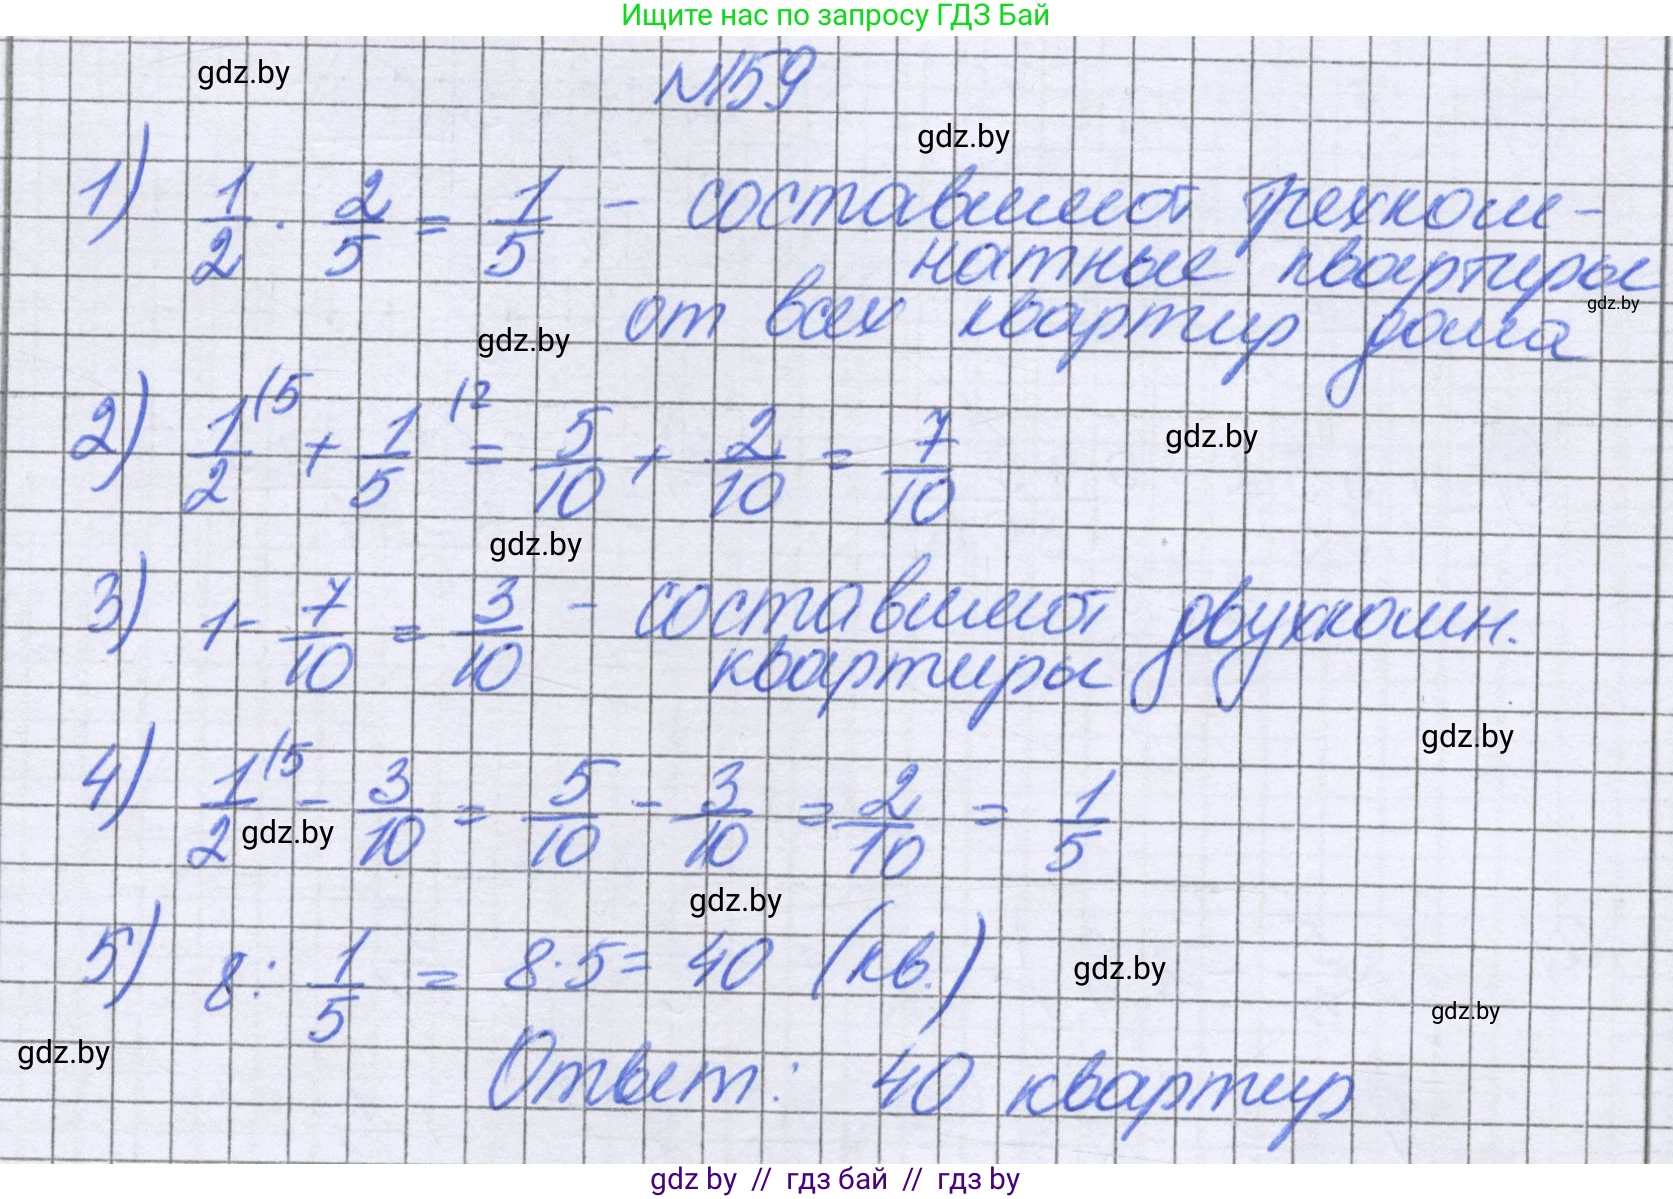 Ищите нас по запросу ГДЗ Бай
gdz.by
№159
gdz.by
1) 1/2 · 2/5 = 1/5 - составляют трехком-
натные квартиры
gdz.by
от всех квартир дома
gdz.by
2) 1/2 (5 + 1/5 (2 = 5/10 + 2/10 = 7/10
gdz.by
gdz.by
3) 1 - 7/10 = 3/10 - составляют двухкомн.
квартиры
gdz.by
4) 1/2 (5 - 3/10 = 5/10 - 3/10 = 2/10 = 1/5
gdz.by
gdz.by
5) 8 : 1/5 = 8·5 = 40 (кв.)
gdz.by
gdz.by
gdz.by
Ответ: 40 квартир
gdz by // гдз бай // гдз by